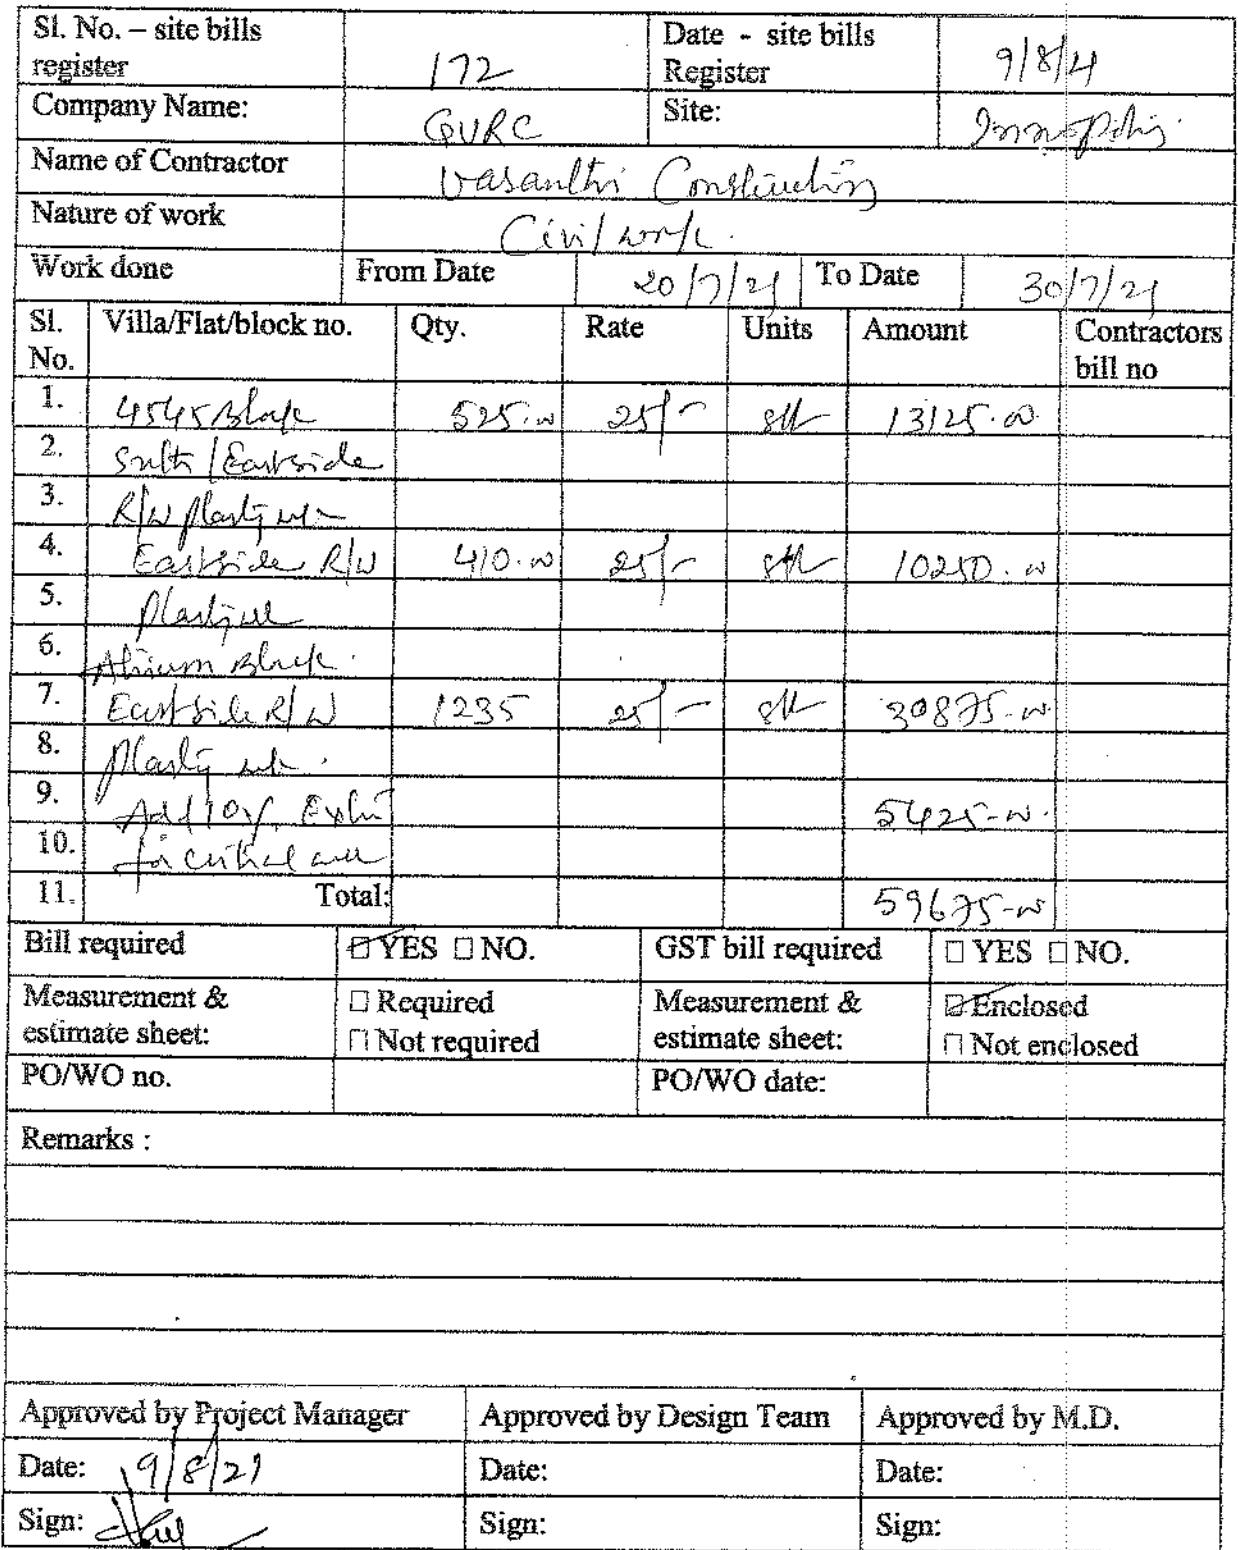 Sl. No. – site bills register 172 Date - site bills Register 9/8/21
Company Name: GVRC Site: Innopolis
Name of Contractor Vasanthi Constructions
Nature of work Civil work.
Work done From Date 20/7/21 To Date 30/7/21
Sl. No. Villa/Flat/block no. Qty. Rate Units Amount Contractors bill no
1. 4545 Block 525.00 25/- sft 13125.00
2. South/Eastside
3. R/W plastering
4. Eastside R/W 410.00 25/- sft 10250.00
5.
6. Atrium Block.
7. Eastside R/W 1235 25/- sft 30875-00
8.
9. Add 10% Extra 5425-00.
10. for critical area
11. Total: 59675-00
Bill required ☑ YES □ NO. GST bill required □ YES □ NO.
Measurement & estimate sheet: □ Required □ Not required Measurement & estimate sheet: ☑ Enclosed □ Not enclosed
PO/WO no. PO/WO date:
Remarks :
Approved by Project Manager Approved by Design Team Approved by M.D.
Date: 9/8/21 Date: Date:
Sign: Sign: Sign: